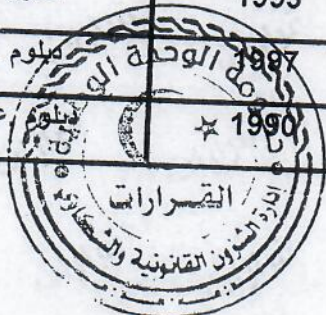 1995
دبلوم 1997
دبلوم 1990
حكومة الوحدة الوطنية
القرارات
إدارة الشؤون القانونية والشكاوى